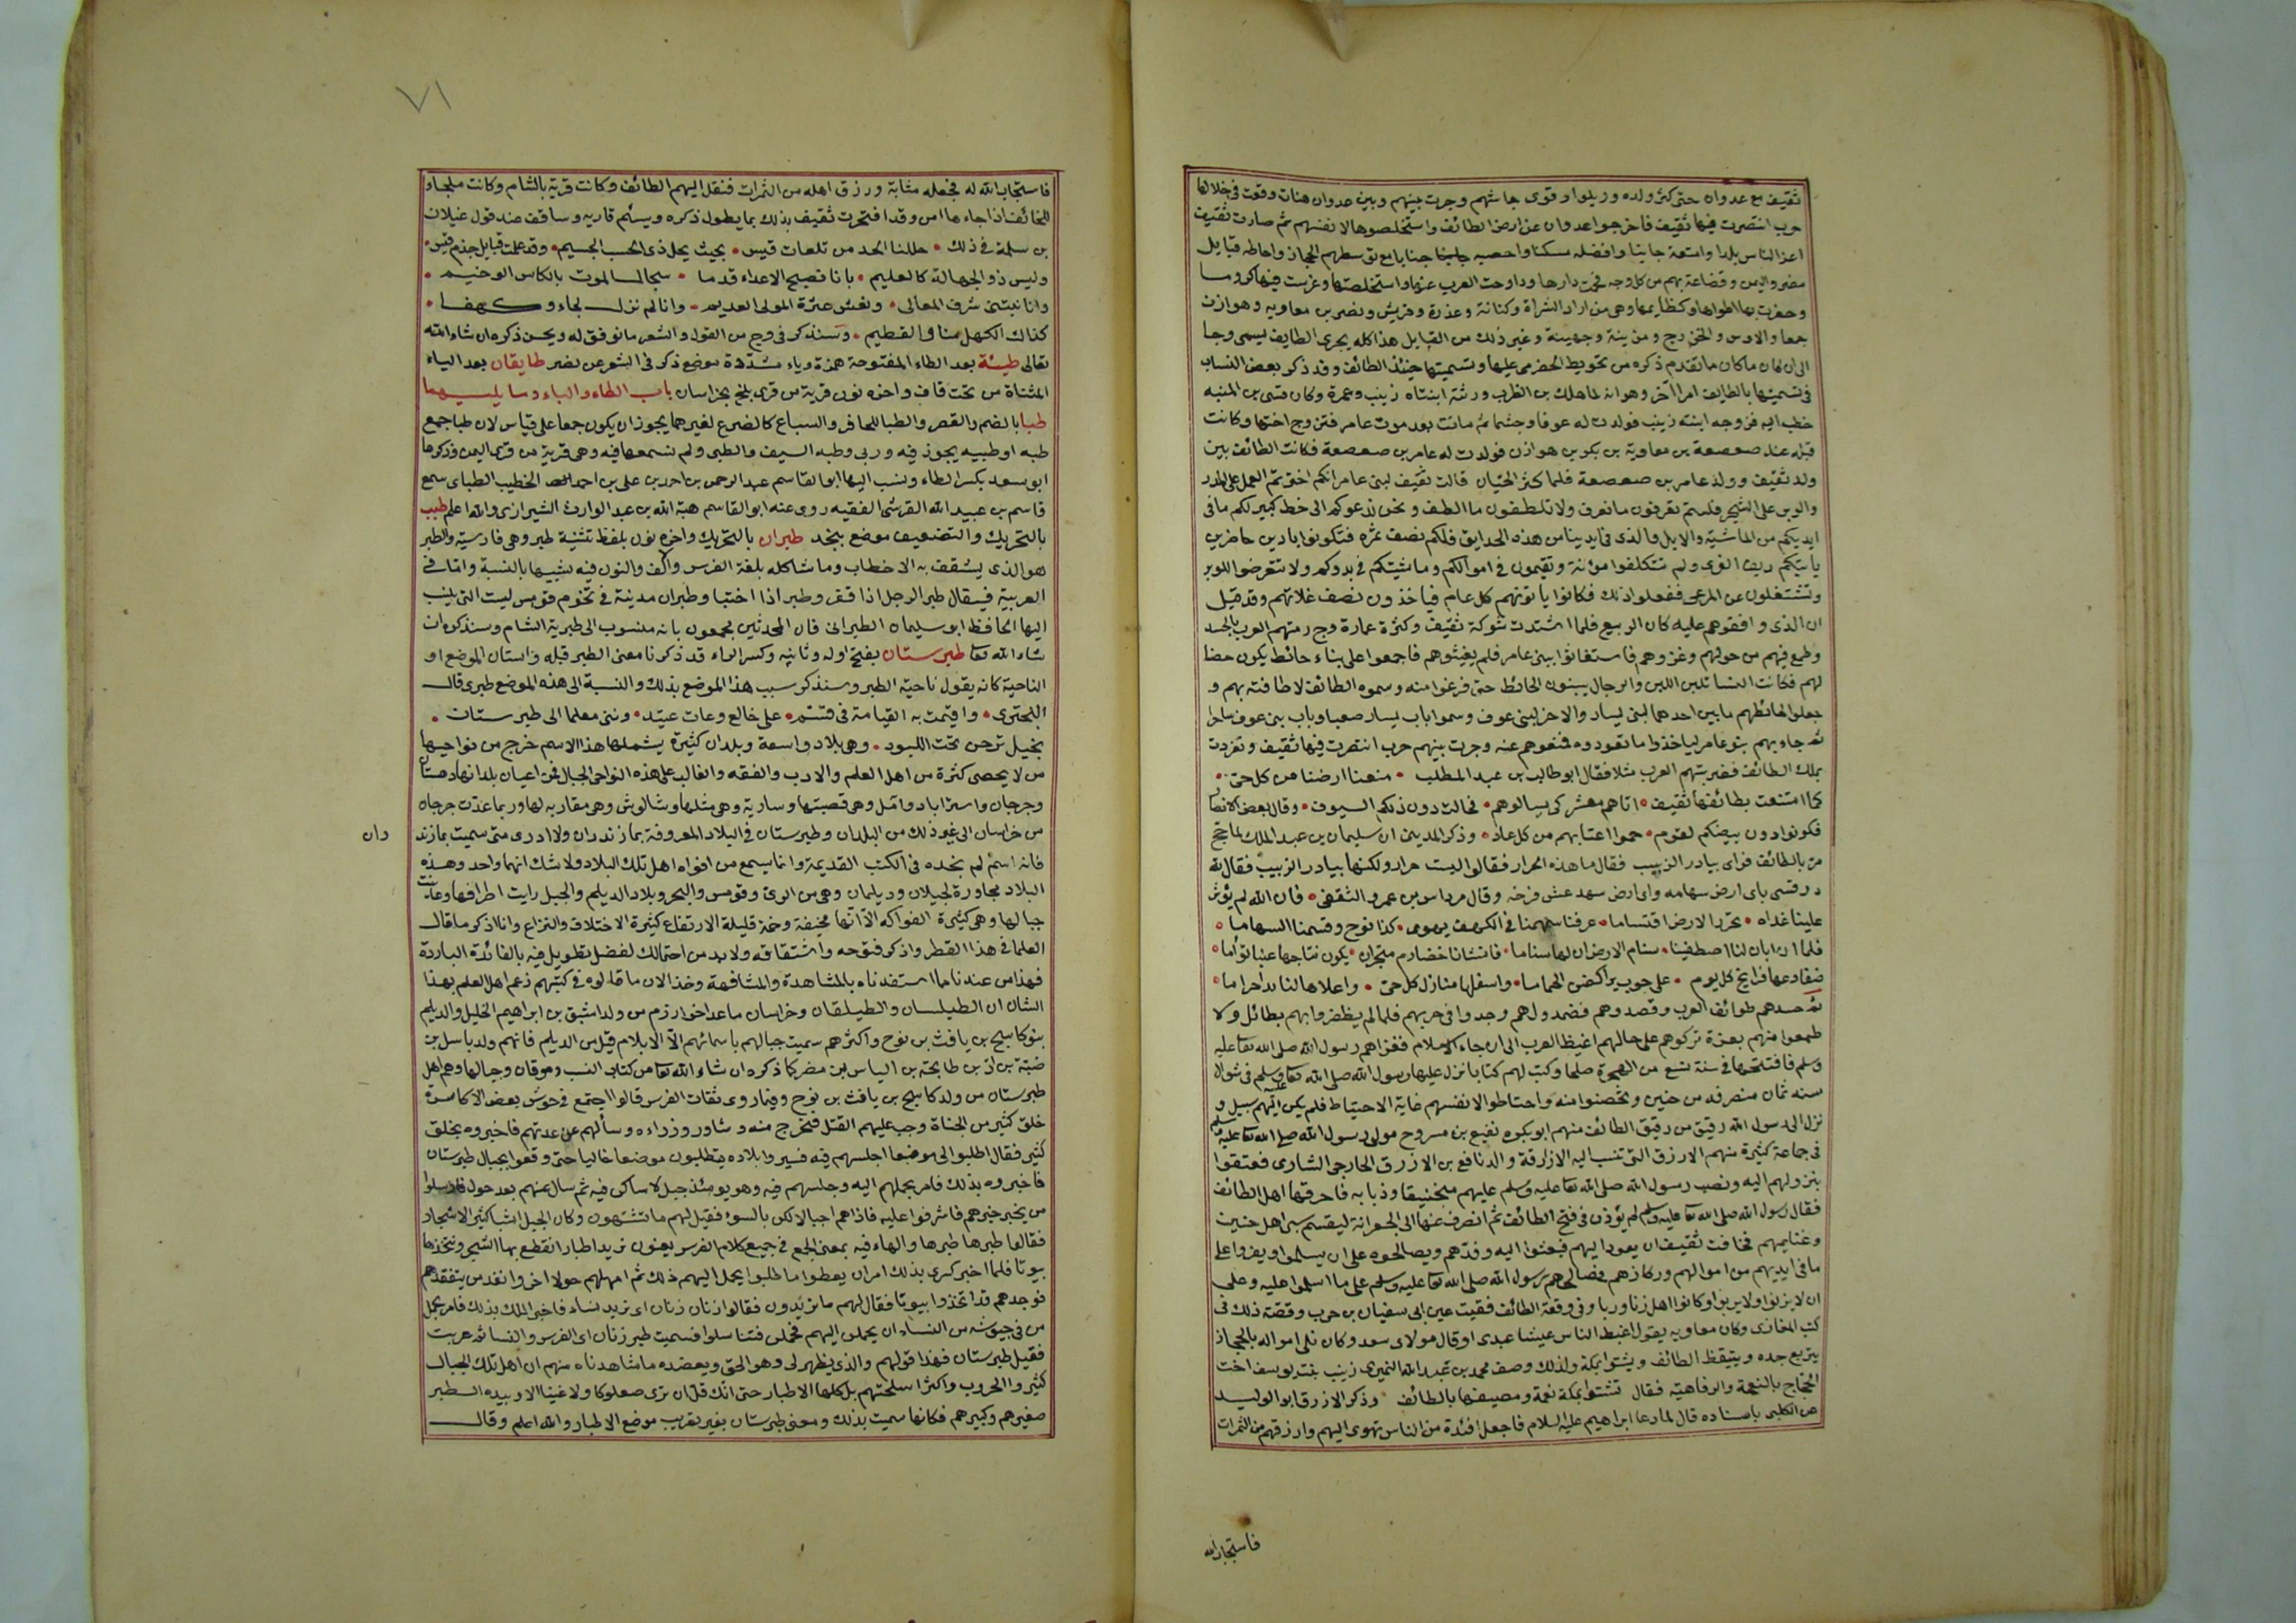 ثقيف مع عدوان حتى كثر ولده وربلوا وقوى جاشهم وجرت بينهم وبين عدوان هنات وقعت فى خلالها
حرب انتصرت فيها ثقيف فاخرجوا عدوان عن ارض الطائف واستخلصوها لانفسهم ثم صارت ثقيف
اعز الناس بلدا وامنعه جانبا وافضله مسكنا واخصبه جنابا مع توسطهم الحجاز واحاطه قبايل
مضر واليمن وقضاعة بهم من كل وجه فحمت دارها وداوحت العرب عنها واستخلصتها وغرست فيها كرومها
وحفرت بها اطواها وكظايمها وهى من ازد السراة وكنانة وعذرة وقريش ونصر بن معاويه وهوازن
جمعا والاوس والخزرج ومزينة وجهينة وغير ذلك من القبايل هذا كله يجرى الطايف يسمى وجا
الى ان كان ما كان ما تقدم ذكره من تحويط الحضرمى عليها وتسميتها حينئذ الطائف وقد ذكر بعض النساب
فى تسميتها بالطايف امرا آخر وهو انه لما هلك بن الظرب ورثته ابنتاه زينب وعمرة وكان قسى بن المنبه
خطب اليه فزوجه ابنته زينب فولدت له عوفا وجشما ثم ماتت بعد موت عامر فتزوج اختها وكانت
قبله عند صعصعة بن معاوية بن بكر بن هوازن فولدت له عامر بن صعصعة فكانت الطائف بين
ولد ثقيف وولد عامر بن صعصعة فلما كثر الحيان قالت ثقيف لبنى عامر انكم اخترتم العمل على المدر
والوبر على الشجر فلستم تعرفون ما نعرف ولا تلطفون ما نلطف ونحن ندعوكم الى حظ كبير لكم ما فى
ايديكم من الماشية والابل والذى فى ايدينا من هذه الحدايق فلكم نصف ثمره فتكونوا بادين حاضرين
ياتيكم ريف القرى ولم تتكلفوا مؤنة وتقيمون فى اموالكم وماشيتكم فى بدوكم ولا تتعرضوا للوبر
وتشتغلون عن المرعى ففعلوا ذلك فكانوا ياتونهم كل عام فياخذون نصف غلاتهم وقد قيل
ان الذى وافقوهم عليه كان الربيع فلما اشتدت شوكة ثقيف وكثرة عمارة وج رمتهم العرب بالحسد
وطمع فيهم من حولهم وغزوهم فاستغاثوا ببنى عامر فلم يغيثوهم فاجمعوا على بناء حائط يكون حصنا
لهم فكانت النسا تلبن اللبن والرجال يبنون الحائط حتى فرغوا منه وسموه الطائف لاطافته بهم و
جعلوا لحائطهم بابين احدهما لبنى يسار والاخر لبنى عوف وسموا باب يسار صعبا وباب بنى عوف ساحرا
ثم جاءهم بنو عامر لياخذوا ما تعودوه فمنعوهم عنه وجرت بينهم حرب انتصرت فيها ثقيف وتفردت
بملك الطائف فضربتهم العرب مثلا فقال ابو طالب بن عبد المطلب • منعنا ارضنا من كل حى •
كما امتنعت بطائفها ثقيف • اتاهم معشر كى يسالوهم • فحالت دون ذلكم السيوف • وقال بعض الانصار
فكونوا دون بيضكم لقوم • حموا اعنابهم من كل عاد • وذكر المدينى ان سليمان بن عبد الملك لما حج
مر بالطائف فراى بيادر الزبيب فقال ما هذه الحرار فقالوا ليست حرار ولكنها بيادر الزبيب فقال لله
در قسى باى ارض سهامه واى ارض مهد عش فرخه وقال مرداس بن عمرو الثقفى • فان الله لم يؤثر
علينا غداه • تحزا الارض اقتساما • عرفنا سهمنا فى الكهف يهوى • كذا نوح وقسمنا السهاما •
فلما ان ابان لنا اصطفينا • سنام الارض ان لها سناما • فانشانا خضارم متجرات • يكون نتاجها عنبا تؤاما •
ضفادعها فرايخ كل يوم • على جوب يراكضن الحماما • واسفلها منازل كل حى • واعلاها لنا بلدا حراما •
ثم حسدهم طوائف العرب وقصدوهم فصمدوا لهم وجدوا فى حربهم فلما لم يظفروا بهم بطائل ولا
طمعوا منهم بغرة تركوهم على حالهم اغيظ العرب الى ان جاء الاسلام فغزاهم رسول الله صلى الله تعا عليه
وسلم فافتتحها فى سنة تسع من الهجرة صلحا وكتب لهم كتابا نزل عليها رسول الله صلى الله تعا عليه وسلم فى شوال
سنه ثمان منصرفه من حنين وتحصنوا منه واحتاطوا لانفسهم غاية الاحتياط فلم يكن اليهم سبيل و
نزل الى رسول الله رقيق من رقيق الطائف منهم ابو بكره نفيع بن مسروح مولى رسول الله صلى الله تعا عليه وسلم
فى جماعة كثيرة منهم الازرق التى تنسب اليه الازارقة والد نافع بن الازرق الخارجى الشارى فعتقوا
بنزولهم اليه ونصب رسول الله صلى الله تعا عليه وسلم عليهم منجنيقا ودبابه فاحرقها اهل الطائف
فقال رسول الله صلى الله تعا عليه وسلم لم يؤذن فى فتح الطائف ثم انصرف عنها الى الجعرانة ليقسم سبى اهل حنين
وغنايمهم فخافت ثقيف ان يعود اليهم فبعثوا اليه وفدهم ويصالحوه على ان يسلموا ويقروا على
ما فى ايديهم من اموالهم وركازهم فصالحهم رسول الله صلى الله تعا عليه وسلم على ما اسلموا عليه وعلى
ان لا يزنوا ولا يربوا وكانوا اهل زنا وربا وفى وقعة الطائف فقيت عين ابى سفيان بن حرب وقصة ذلك فى
كتب المغازى وكان معاويه يقول اغبط الناس عيشا عبدى او قال مولاى سعد وكان يلى امواله بالحجاز
يتربع جده ويتيقظ الطائف ويشتوا بمكة ولذلك وصف محمد بن عبد الله النميرى زينب بنت يوسف اخت
الحجاج بالنعمة والرفاهيه فقال تشتوا بمكة نعمة ومصيفها بالطائف وذكر الازرقا ابو الوليد
عن الكلبى باسناده قال لما دعا ابراهيم عليه السلام فاجعل افئدة من الناس تهوى اليهم وارزقهم من الثمرات
فاستجاب الله
٧١
فاستجاب الله له فجعله مثابة ورزق اهله من الثمرات فنقل اليهم الطائف وكانت قرية بالشام وكانت ملجاء
للخائف اذا جاءها امن وقد افتخرت ثقيف بذلك بما يطول ذكره ويسئم قاريه وساقف عند قول غيلان
بن سلمة فى ذلك • حللنا الحد من تلعات قيس • بحيث يحل ذى الحسب الجسيم • وقد علمت قبايل جذم قيس •
وليس ذو الجهالة كالعليم • بانا نصبح الاعداء قدما • سجال الموت بالكاس الوخيم •
وانا نبتنى شرف المعالى • ونعش عثرة المولى العديم • وانا لم نزل لجاء وكهفا •
كذاك الكهل منا والفطيم • وسنذكر فى وج من القول والشعر ما نوفق له ويحسن ذكره ان شاء الله
تعالى طيئة بعد الطاء المفتوحة همزة وياء مشددة موضع ذكر فى الشعر عن نصر طايقان بعد الياء
المثناة من تحت قاف واخره نون قرية من قرى بلخ بخراسان باب الطاء والباء وما يليهما
طبا بالضم والقصر والطبا للحافر والسباع كالضرع لغيرهما يجوز ان يكون جمعا على قياس لان طبا جمع
طبه او طبيه يجوز فيه وربى وظبه السيف والظبى ولم نسمعها فيه وهى قرية من قرى اليمن وذكرها
ابو سعد بكسر الطاء ونسب اليها ابو القاسم عبد الرحمن بن احمد بن على بن احمد الخطيب الطباى سمع
قاسم بن عبيد الله القرشى الفقيه روى عنه ابو القاسم هبة الله بن عبد الوارث الشيرازى والله اعلم طبب
بالتحريك والتضعيف موضع بنجد طبران بالتحريك واخره نون بلفظ تثنية طبر وهى فارسية والطبر
هو الذى يشقف به الاحطاب وما شاكله بلغة الفرس والف والنون فيه تشبيها بالنسبة واما فى
العربية فيقال طبر الرجل اذا قفز وطبر اذا اختبا وطبران مدينة فى تخوم قومس ليست التى ينسب
اليها الحافظ ابو سليمان الطبرانى فان المحدثين مجمعون بانه منسوب الى طبرية الشام وسنذكره ان
شاء الله تعا طبرستان بفتح اوله وثانيه وكسر الراء قد ذكرنا معنى الطبر قبله واستان الموضع او
الناحية كانه يقول ناحية الطبر وسنذكر سبب هذا الموضع بذلك والنسبة الى هذه الموضع طبرى قال
البحترى • واقيمت به القيامة فى قتتم • على خالع وعات عتيد • وثنى معلما الى طبرستان •
بخيل ترحن تحت اللبود • وهى بلاد واسعة وبلدان كثيرة يشملها هذا الاسم خرج من نواحيها
من لا يحصى كثرة من اهل العلم والادب والفقه والغالب على هذه النواحى الجبال فمن اعيان بلدانها دهستان
وجرجان واستراباد وآمل وهى قصبتها وسارية وهى مثلها وشالوش وهى مقاربه لها وربما عدت جرجان
من خراسان الى غير ذلك من البلدان وطبرستان فى البلاد المعروفة بمازندران ولا ادرى متى سميت بمازند
ران
فانه اسم لم نجده فى الكتب القديمة وانما يسمع من افواه اهل تلك البلاد ولا شك انهما واحد وهذه
البلاد مجاورة لجيلان وديلمان وهى من الرى وقومس والبحر وبلاد الديلم والجبل رايت اطرافها وعاينت
جبالها وهى كثيرة الفواكه الا انها مخيفة وخمة قليلة الارتفاع كثيرة الاختلاف والنزاع وانا اذكر ما قال
العلما فى هذا القطر واذكر فتوحه واشتقاقه ولا بد من احتمالك لفصل تطويل فيه بالفائدة الباردة
فهذا من عندنا مما استفدناه بالمشاهدة والمشافهة وخذ الان ما قالوه فى كتبهم زعم اهل العلم بهذا
الشان ان الطيلسان والطيلقان وخراسان ما عدا خوارزم من ولد اشبق بن ابراهيم الخليل والديلم
بنو كاسح بن يافث بن نوح واكثرهم سميت جبالهم باسمائهم الا الايلام قبيل من الديلم فانهم ولد باسل بن
ضبة بن اد بن طابخة بن الياس بن مضر كما ذكره ان شاء الله تعا من كتاب النسب وموقان وجبالها وهم اهل
طبرستان من ولد كاسح بن يافث بن نوح وفيما روى ثقات الفرس قالوا اجتمع فى حوش بعض الاكاسرة
خلق كثير من الجناة وجب عليهم القتل فتحرج منه وشاور وزراءه وسألهم عن عدتهم فاخبروه بخلق
كثير فقال اطلبوا الى موضعا احبسهم فيه فسيروا بلاده يطلبون موضعا خاليا حتى وقعوا بجبال طبرستان
فاخبروه بذلك فامر بحملهم اليه وحبسهم فيه وهو يومئذ جبل لا ساكن فيه ثم سال عنهم بعد حول فارسلوا
من يخبر خبرهم فاشرفوا عليه فاذا هم احيا لاكن بالسوء فقيل لهم ما تشتهون وكان الجبل اشبا كثير الاشجار
فقالوا طبرها طبرها والهاء فيه بمعنى الجمع فى جميع كلام الفرس يعنون نريد اطبار انقطع بها الشجر ونتخذها
بيوتا فلما اخبر كسرى بذلك امر ان يعطوا ما طلبوا يحمل اليهم ذلك ثم امهلهم حولا اخر وانفذ من يتفقدهم
فوجدهم قد اتخذوا بيوتا فقال لهم ما تريدون فقالوا زنان زنان اى نريد نساء فاخبر الملك بذلك فامر بحمل
من فى حبوسه من النساء ان يحملن اليهم فحملن فتناسلوا فسميت طبر زنان اى الفوس والنسا ثم عربت
فقيل طبرستان فهذا قولهم والذى يظهر لى وهو الحق ويعضده ما شاهدناه منهم ان اهل تلك الجبال
كثيروا الحروب واكثر اسلحتهم بل كلها الاطبار حتى انك قل ان ترى صعلوكا ولا غنيا الا وبيده الطبر
صغيرهم وكبيرهم فكانها سميت بذلك ومعنى طبرستان بغير تعريب موضع الاطبار والله اعلم وقال